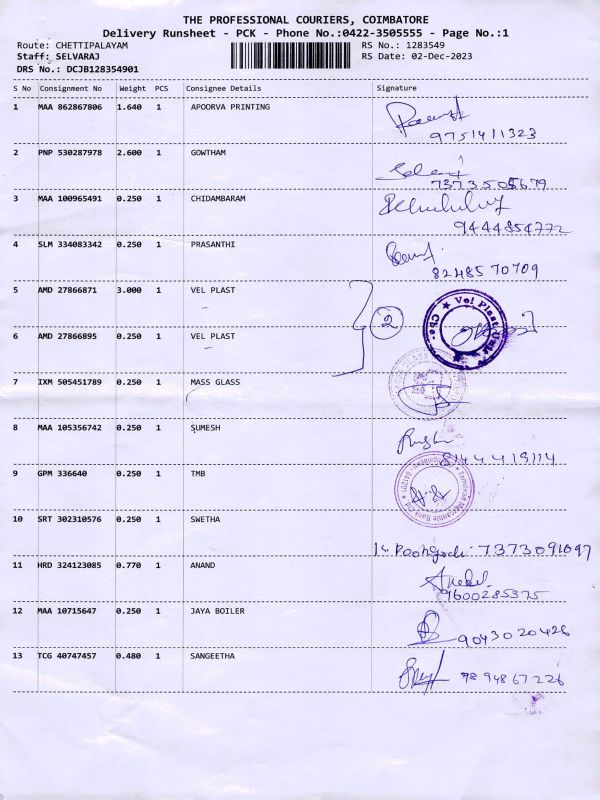 THE PROFESSIONAL COURIERS, COIMBATORE
Delivery Runsheet - PCK - Phone No.:0422-3505555 - Page No.:1
Route: CHETTIPALAYAM RS No.: 1283549
Staff: SELVARAJ RS Date: 02-Dec-2023
DRS No.: DCJB128354901
S No Consignment No Weight PCS Consignee Details Signature
1 MAA 862867806 1.640 1 APOORVA PRINTING
9751411323
2 PNP 530287978 2.600 1 GOWTHAM
7373505679
3 MAA 100965491 0.250 1 CHIDAMBARAM
9444854772
4 SLM 334083342 0.250 1 PRASANTHI
8248570709
5 AMD 27866871 3.000 1 VEL PLAST
2
Vel Plast
Cbe.
6 AMD 27866895 0.250 1 VEL PLAST
7 IXM 505451789 0.250 1 MASS GLASS
8 MAA 105356742 0.250 1 SUMESH
9 GPM 336640 0.250 1 TMB
Tamilnad Mercantile Bank Ltd
10 SRT 302310576 0.250 1 SWETHA
7373091097
11 HRD 324123085 0.770 1 ANAND
9600285375
12 MAA 10715647 0.250 1 JAYA BOILER
9043020426
13 TCG 40747457 0.480 1 SANGEETHA
9894867226